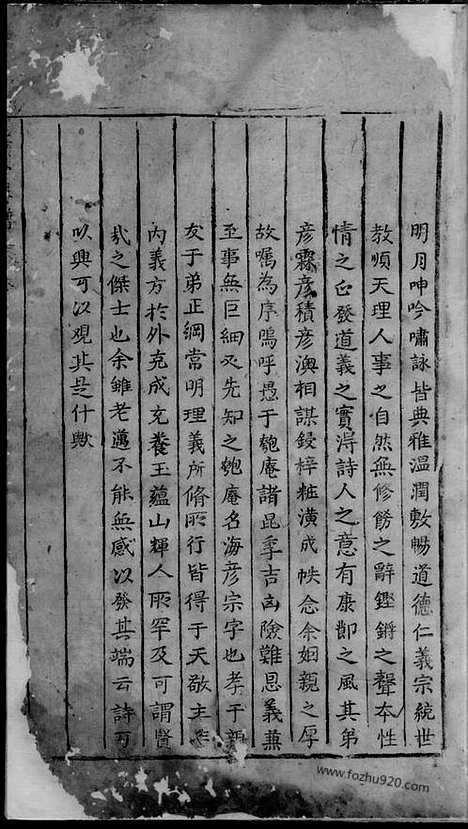 明月呻吟嘯詠皆典雅溫潤敷暢道德仁義宗統世
教順天理人事之自然無修飾之辭鏗鏘之聲本性
情之正發道義之實得詩人之意有康節之風其弟
彦霖彦積彦澳相謀鋟梓粧潢成帙念余姻親之厚
故嘱為序嗚呼愚于匏庵諸昆季吉凶險難恩義兼
至事無巨細必先知之匏庵名海彦宗字也孝于親
友于弟正綱常明理義所脩所行皆得于天敬主
内義方於外克成充養玉蘊山輝人所罕及可謂賢
哉之傑士也余雖老邁不能無感以發其端云詩可
以興可以觀其是什歟
www.fozhu920.com